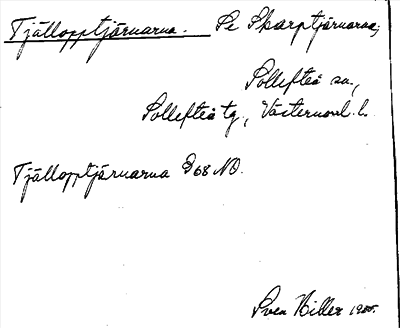 Tjälloptjärnarna. Se Skarptjärnarna,
Sollefteå sn.,
Sollefteå tg, Västernorrl. l.
Tjälloptjärnarna 868 NO.
Sven Hiller